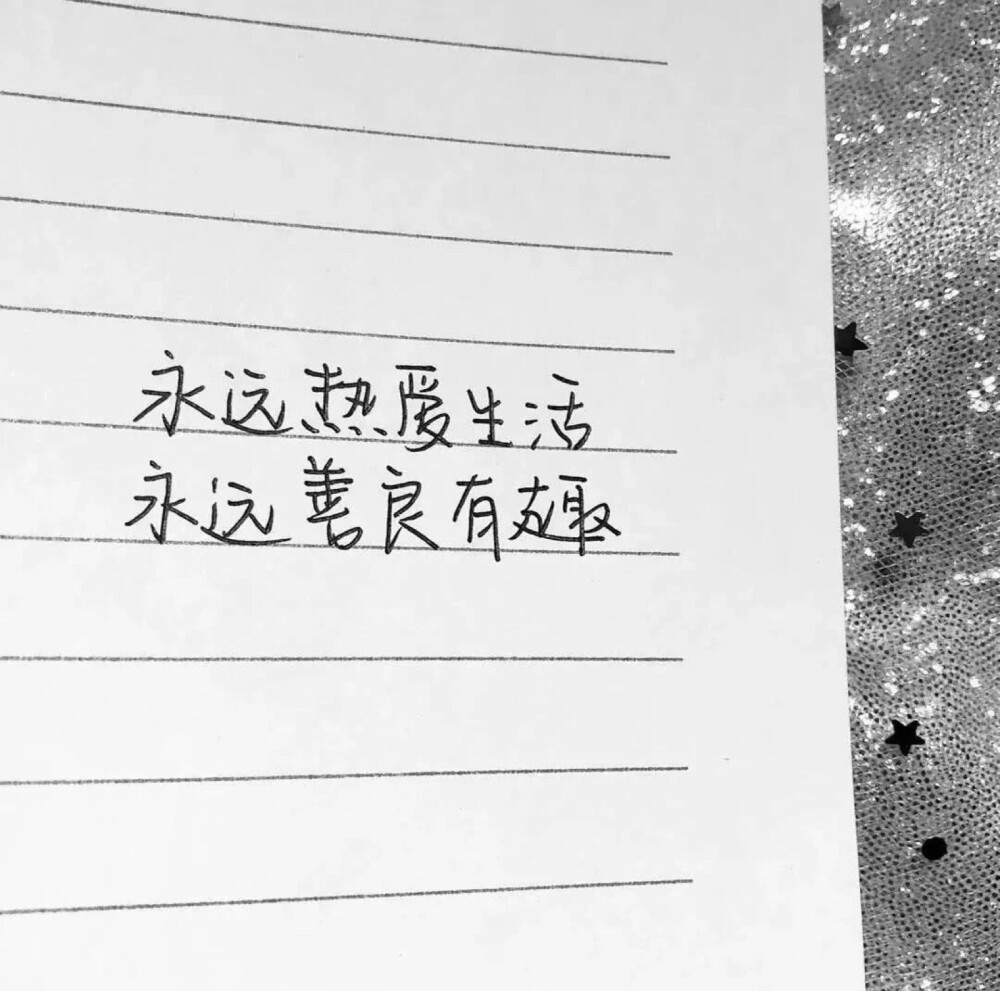 永远热爱生活
永远善良有趣